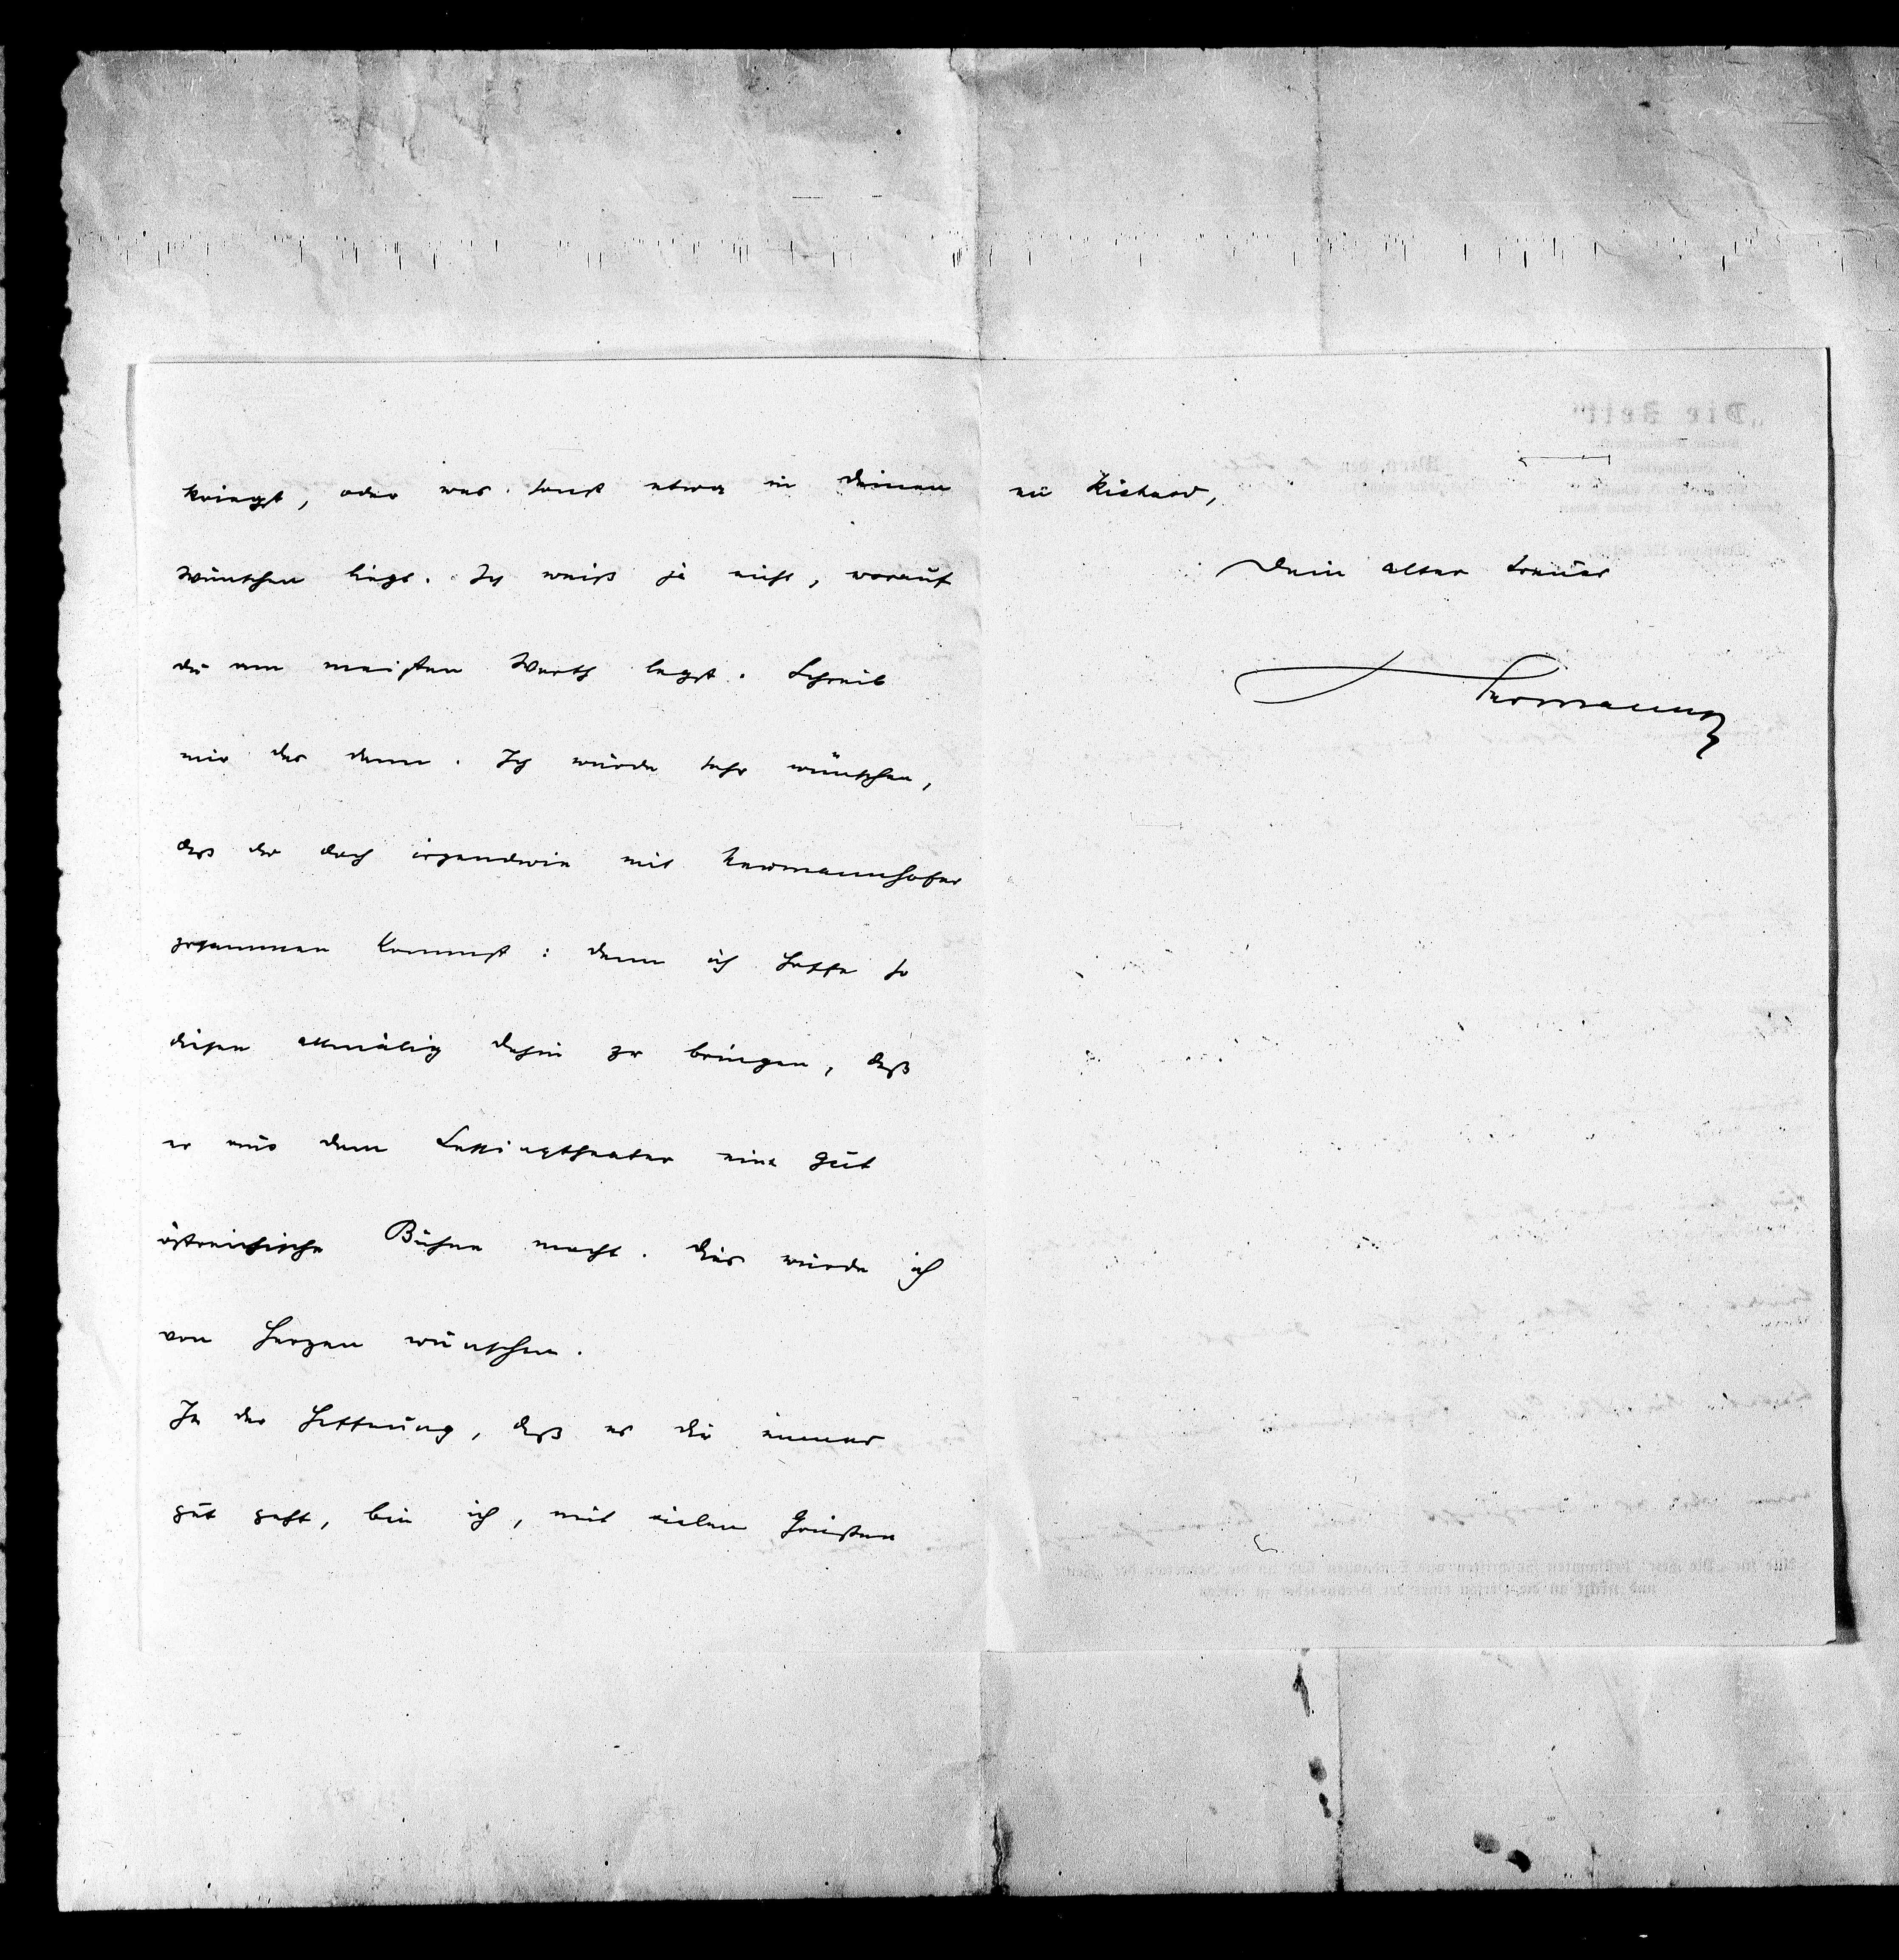 kriegst, oder was sonst etwa in Deinen
Wünschen liegt. Ich weiß ja nicht, worauf
du am meisten Werth legst. Schreib
mir das dann. Ich würde sehr wünschen,
daß du doch irgendwie mit Neumannhofer
zusammen kommst: denn ich hoffe so
diesen allmälig dahin zu bringen, daß
er aus dem Lessingtheater eine gut
östreichische Bühne macht. Dies würde ich
von Herzen wünschen.
In der Hoffnung, daß es dir immer
gut geht, bin ich, mit vielen Grüßen
an Richard,
Dein alter treuer
Hermann